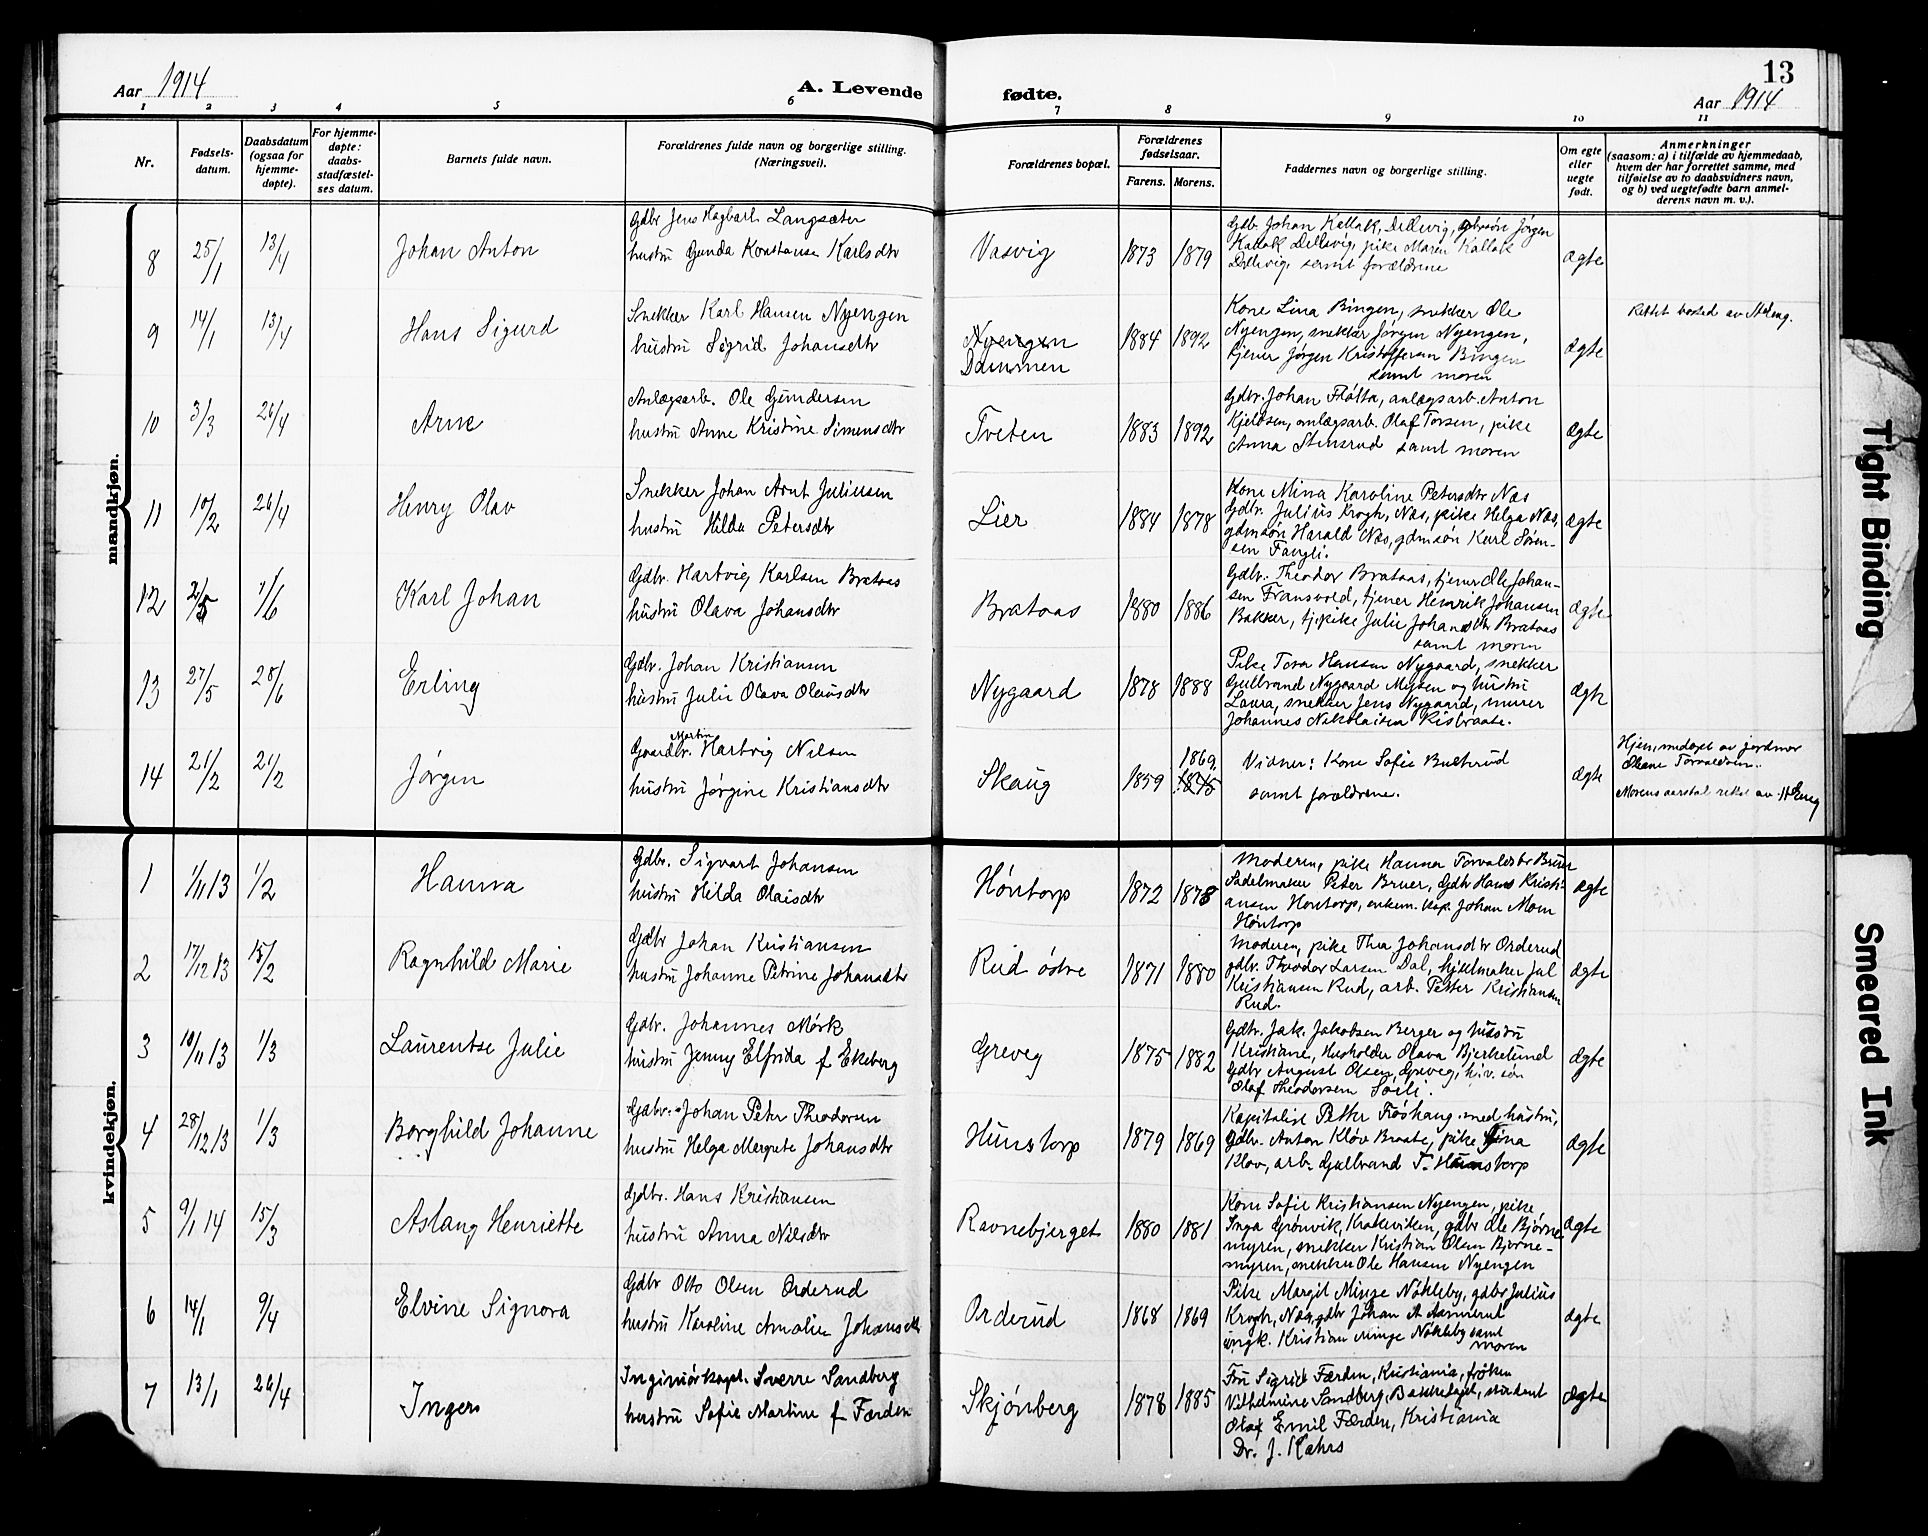 Aar 1914
A. Levende
fødte.
13
Aar 1914
1 2 3 4 5 6 7 8 9 10 11
Nr.
Fødsels-
datum.
Daabsdatum
(ogsaa for
hjemme-
døpte).
For hjemme-
døpte:
daabs-
stadfæstel-
ses datum.
Barnets fulde navn.
Forældrenes fulde navn og borgerlige stilling.
(Næringsvei).
Forældrenes bopæl.
Forældrenes
fødselsaar.
Farens. Morens.
Faddernes navn og borgerlige stilling.
Om egte
eller
uegte
født.
Anmerkninger
(saasom: a) i tilfælde av hjemmedaab,
hvem der har forrettet samme, med
tilføielse av to daabsvidners navn,
og b) ved uegtefødte barn anmel-
derens navn m. v.).
mandkjøn.
8 25/1 13/4 Johan Anton
Gdbr Jens Hagbart Langsæter
hustru Gunda Konstanse Karlsdtr
Vasvig 1873 1879
Gdb. Johan Kallak, Dillevig, gbrsøn Jørgen
Kallak Dillevig, pike Maren Kallak
Dillevig samt forældrene
ægte
9 14/1 13/4 Hans Sigurd
Snekker Karl Hansen Nyengen
hustru Sigrid Johansdtr
Nyengen
Dammen
1884 1892
Kone Lina Bingen, snekker Ole
Nyengen, snekker Jørgen Nyengen,
tjener Jørgen Kristoffersen Bingen
samt moren
ægte
Rettet bosted av
10 3/3 26/4 Arne
Anlægsarb. Ole Gundersen
hustru Anne Kristine Simensdtr
Tveten 1883 1892
Gdbr. Johan Fløtta, anlægsarb. Anton
Kjeldsen, anlægsarb. Olaf Torsen, pike
Anna Stensrud samt moren
ægte
11 10/2 26/4 Henry Olav
Snekker Johan Arnt Juliusen
hustru Hilda Petersdtr
Lier 1884 1878
Kone Mina Karoline Petersdtr Næs
Gdbr. Julius Krogh, Næs, pike Helga Næs,
gdmsøn Harald Næs, gdmsøn Karl Søren-
sen Fangli.
ægte
12 2/5 1/6 Karl Johan
Gdbr. Hartvig Karlsen Brataas
hustru Olava Johansdtr
Brataas 1880 1886
Gdbr. Theodor Brataas, tjener Ole Johan-
sen Fransvold, tjener Henrik Johansen
Bakker, tj.pike Julie Johansdtr Brataas
samt moren
ægte
13 27/5 28/6 Erling
Gdbr. Johan Kristiansen
hustru Julie Olava Olausdtr
Nygaard 1878 1888
Pike Tora Hansen Nygaard, snekker
Gulbrand Nygaard Mysen og hustru
Laura, snekker Jens Nygaard, murer
Johannes Nikolaisen Risbraate.
ægte
14 21/2 21/2 Jørgen
Martin
Gaardbr. Hartvig Nilsen
hustru Jørgine Kristiansdtr
Skaug 1859
1869.
1875
Vidner: Kone Sofie Butterud
samt forældrene.
ægte
Hjemmedøpt av jordmor
Torvaldsen.
Morens aarstal rettet av
kvindekjøn.
1 1/11 13 1/2 Hanna
Gdbr. Sigvart Johansen
hustru Hilda Olaisdtr
Høntorp 1872 1878
Moderen, pike Hanna Torvaldsdtr Bruer
Sadelmaker Peter Bruer, Gdbr Hans Kristi-
ansen Høntorp, enkem. kap. Johan Moen
Høntorp
ægte
2 17/12 13 15/2 Ragnhild Marie
Gdbr Johan Kristiansen
hustru Johanne Petrine Johansdtr
Rud østre 1871 1880
Moderen, pike Thea Johansdtr Orderud
gdbr. Theodor Larsen Dal, hjulmaker Jul
Kristiansen Rud, arb. Petter Kristiansen
Rud.
ægte
3 10/11 13 1/3 Laurentse Julie
Gdbr. Johannes Mørk
hustru Jenny Elfrida f Ekeberg
Greveg 1875 1882
Gdbr. Jak. Jakobsen Berger og hustru
Kristiane, Husholder Olava Bjerkelund
Gdbr August Olsen, Greveg, hv. søn
Olaf Theodorsen Søili.
ægte
4 28/12 13 1/3 Borghild Johanne
Gdbr. Johan Peter Theodorsen
hustru Helga Mergrete Johansdtr
Hunstorp 1879 1869
Kapitalist Petter Frøshaug med hustru,
Gdbr. Anton Kløv Braate, pike Tina
Kløv, arb. Gulbrand T. Hunstorp
ægte
5 9/1 14 15/3 Aslaug Henriette
Gdbr. Hans Kristiansen
hustru Anna Nilsdtr
Ravnebjerget 1880 1881
Kone Sofie Kristiansen Nyengen, pike
Inga Grønvik, Krakeviken, gdbr Ole Bjørne-
myren, snekker Kristian Olsen Bjørne-
myren, snekker Ole Hansen Nyengen
ægte
6 14/1 9/4 Elvine Signora
Gdbr Otto Olsen Orderud
hustru Karoline Amalie Johansdtr
Orderud 1868 1869
Pike Margit Minge Nøkleby, gdbr Julius
Krogh, Næs, gdbr Johan A
ungk. Kristian Minge Nøkleby samt
moren
ægte
7 13/1 26/4 Inger
Ingeniørkapt. Sverre Sandberg
hustru Sofie Martine f Færden
Skjønberg 1878 1885
Fru Sigrid Færden, Kristiania, frøken
Vilhelmine Sandberg, Bakkehaget, student
Olaf Emil Færden, Kristiania
Dr. J. Kahrs
ægte
Tight Binding
Smeared Ink